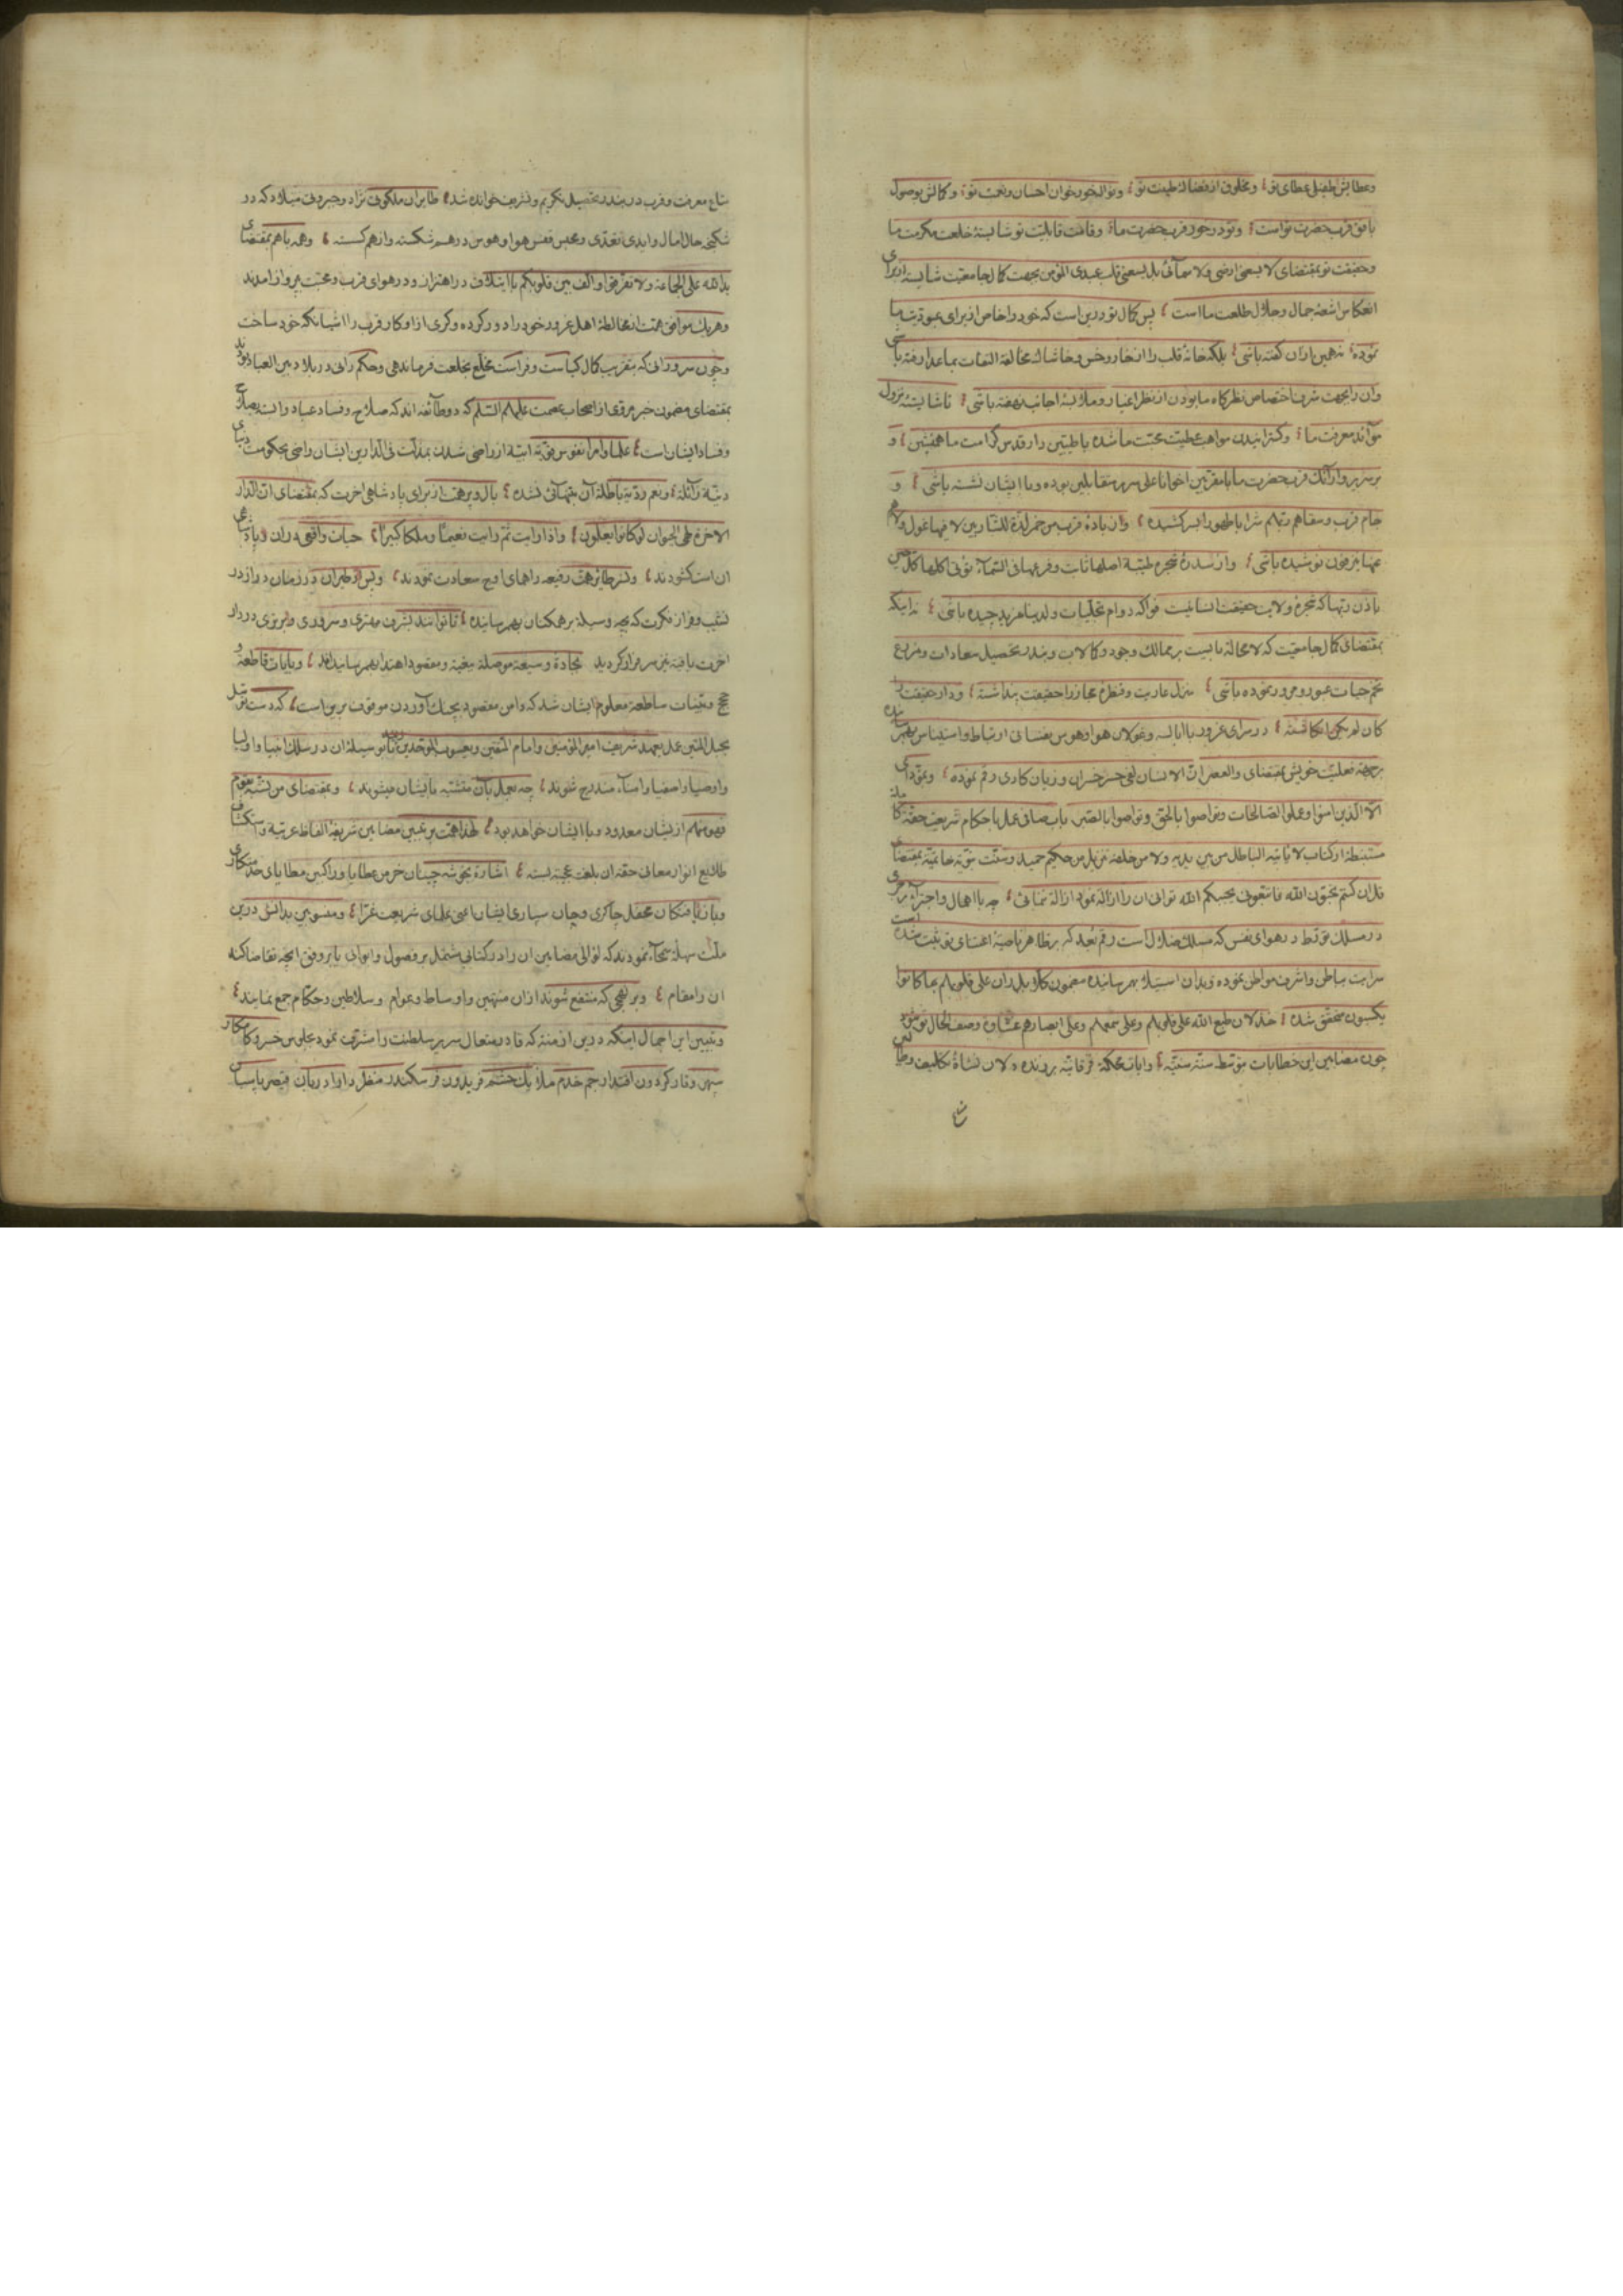 وعطایش طفیل عطای تو و مخلوق از فضالهٔ طینت تو و نوالخور خوان احسان و نعمت تو و کمالش بوصول
بافق قرب حضرت تو است و تو در خور قرب حضرت ما و قامت قابلیت تو شایستهٔ خلعت مکرمت ما
و حقیقت تو بمقتضای لا یسعنی ارضی ولا سمائی بل یسعنی قلب عبدی المؤمن بجهت کمال جامعیت شایسته از برای
انعکاس اشعهٔ جمال و جلال طلعت ما است پس کمال تو درین است که خود را خاص از برای عبودیت ما
نموده نه همین از ان کفته باشی بلکه خانهٔ قلب را از خار و خس و خاشاک مخالفهٔ التفات بماعدا رفته باشی
وان را بجهت شرف اختصاص نظرکاه ما بودن از نظر اغیار و ملابسهٔ اجانب نهفته باشی تا شایستهٔ نزول
موائد معرفت ما و کسترانیدن مواهب عطیت محبت ما شده با طیبین دار قدس کرامت ما همنشین و
بر سریر وارائک قرب حضرت ما با مقربین اخوانا علی سرر متقابلین بوده وبا ایشان نشسته باشی و
جام قرب وسقاهم ربهم شرابا طهورا بسر کشیده وان بادهٔ قرب من خمر لذة للشاربین لا فیها غول ولا هم
عنها ینزفون نوشیده باشی و از سدرهٔ شجره طیبة اصلها ثابت وفرعها فی السماء تؤتی اکلها کل حین
باذن ربها که شجرهٔ ولایت حقیقت انسانیت فواکه دوام تجلیات ولدینا مزید چیده باشی نه اینکه
بمقتضای کمال جامعیت که لا محالة بایست بر ممالک وجود و کمالات و بندر تحصیل سعادات و مزرع
تخم حیات عبور و مرور نموده باشی منزل عاریت و قنطرهٔ مجاز را حقیقت پنداشته و دار حقیقت را
کان لم یکن انکاشته در سرای غرور با ابالسه و غولان هوا و هوس نفسانی ارتباط و استیناس بهم رسانیده
بر صفهٔ فعلیت خویش بمقتضای والعصر ان الانسان لفی خسر خسران و زیان کاری رقم نموده
الا الذین امنوا وعملوا الصالحات وتواصوا بالحق وتواصوا بالصبر باب صافی عمل باحکام شریعت حقهٔ
مستنبطه از کتاب لا یاتیه الباطل من بین یدیه ولا من خلفه تنزیل من حکیم حمید وسنت نبویه خاتمیه بمقتضای
قل ان کنتم تحبون الله فاتبعونی یحببکم الله توانی ان را ازاله نمود ازاله ننمائی چه با اهمال
در مسلک تو در هوای نفس که مسلک ضلال است رقم بعد که بر ظاهر ناصیهٔ اعتنای تو ثبت شده است
سرایت بباطن واشرف مواطن نموده وبدان استیلا بهم رسانیده مضمون کلا بل ران علی قلوبهم بما کانوا
یکسبون متحقق شده خذلان طبع الله علی قلوبهم وعلی سمعهم وعلی ابصارهم غشاوة وصف الحال تو شود
چون مضامین این خطابات بتوسط سنهٔ سنیه وایات محکمهٔ فرقانیه بر زنده دلان نشاهٔ تکالیف
متاع معرفت و قرب در بندر تحصیل تکریم و تشریف خوانده شد طایران ملکوتی نژاد و جبروتی میلاد که در
شکنجه حال امال و ایدی تعدی ومحبس قفس هوا و هوس درهم شکسته و از هم کسسته وهمه با هم بمقتضای
ید الله علی الجماعة ولا تفرقوا والف بین قلوبکم با ایتلاف در اهتزاز و در هوای قرب و محبت بپرواز امدند
و هر یک موافق همت از مخالطهٔ اهل غرور خود را دور کرده وکری از اوکار قرب را اشیانکه خود ساخت
وچون سرورانی که بتقریب کمال کیاست و فراست مخلع بخلعت فرماندهی و حکم رانی در بلاد بین العباد بودند
بمقتضای مضمون خبر مروی از اصحاب عصمت علیهم السلم که دو طائفه اند که صلاح وفساد عباد وابسته بصلاح
وفساد ایشان است علما وامرا نفوس قویهٔ ابیه از راضی شدن بمذلت فی الدارین ایشان راضی بحکومت دنیای
دنیهٔ زائله ونعم ردیهٔ باطلهٔ آن بتنهائی نشده بال وپر همت از برای پادشاهی اخرت که بمقتضای ان الدار
الاخرة لهی الحیوان لو کانوا یعلمون واذا رایت ثم رایت نعیما وملکا کبیرا حیات واقعی دران وپادشاهی
ان است کشودند و نسر طایر همت رفیعه را همای اوج سعادت نمودند وپس از طیران در زمان دراز در
نشیب وفراز فکرت که بچه وسیله بر همکنان بهم رسانیده تا توانند بشرف مهتری وسروری وبرتری در دار
اخرت یافته نیز سرافراز کردید بجادهٔ وسیعهٔ موصله ببغیه ومقصود اهتدا بهم رسانیدند وبایات قاطعه و
حجج وبینات ساطعه معلوم ایشان شد که دامن مقصود بچنک آوردن موقوف برین است که دست توسل
بحبل المتین عمل بعهد شریعت امیر المؤمنین وامام المتقین ویعسوب الموحدین زنند تا بوسیلهٔ ان در سلک انبیا واولیا
واوصیا واصفیا وامناء مندرج شوند چه بعمل بآن متشبه بایشان میشوند وبمقتضای من تشبه بقوم
فهو منهم ازیشان معدود وبا ایشان خواهد بود لهذا همت بر تبیین مضامین شریفهٔ الفاظ عربیه واستکشاف
طلایع انوار معانی حقهٔ ان بلغت عجمیه بسته اشاره بخوشه چینان خرمن عطایا وراکبین مطایای خدمتکاری
وبازیافتکان محفل چاکری وجان سپاری ایشان اعنی علمای شریعت غرا ومنسوبین بدانش درین
ملت سهلهٔ سمحاء نمودند که لؤالی مضامین ان را در کتابی مشتمل بر فصول وابوابی یا بر وفق انچه تقاضا کند
ان را مقام وبر نهجی که منتفع شوند ازان منتهین واوساط وعوام وسلاطین وحکام جمع نمایند
وتبیین این اجمال اینکه درین ازمنه که قادر متعال سریر سلطنت را مشرف نمود بجلوس خسرو کامکار
سپهر وقار کردون اقتدار جم خدم ملایک حشم فریدون فر سکندر منظر دارا دربان قیصر پاسبان